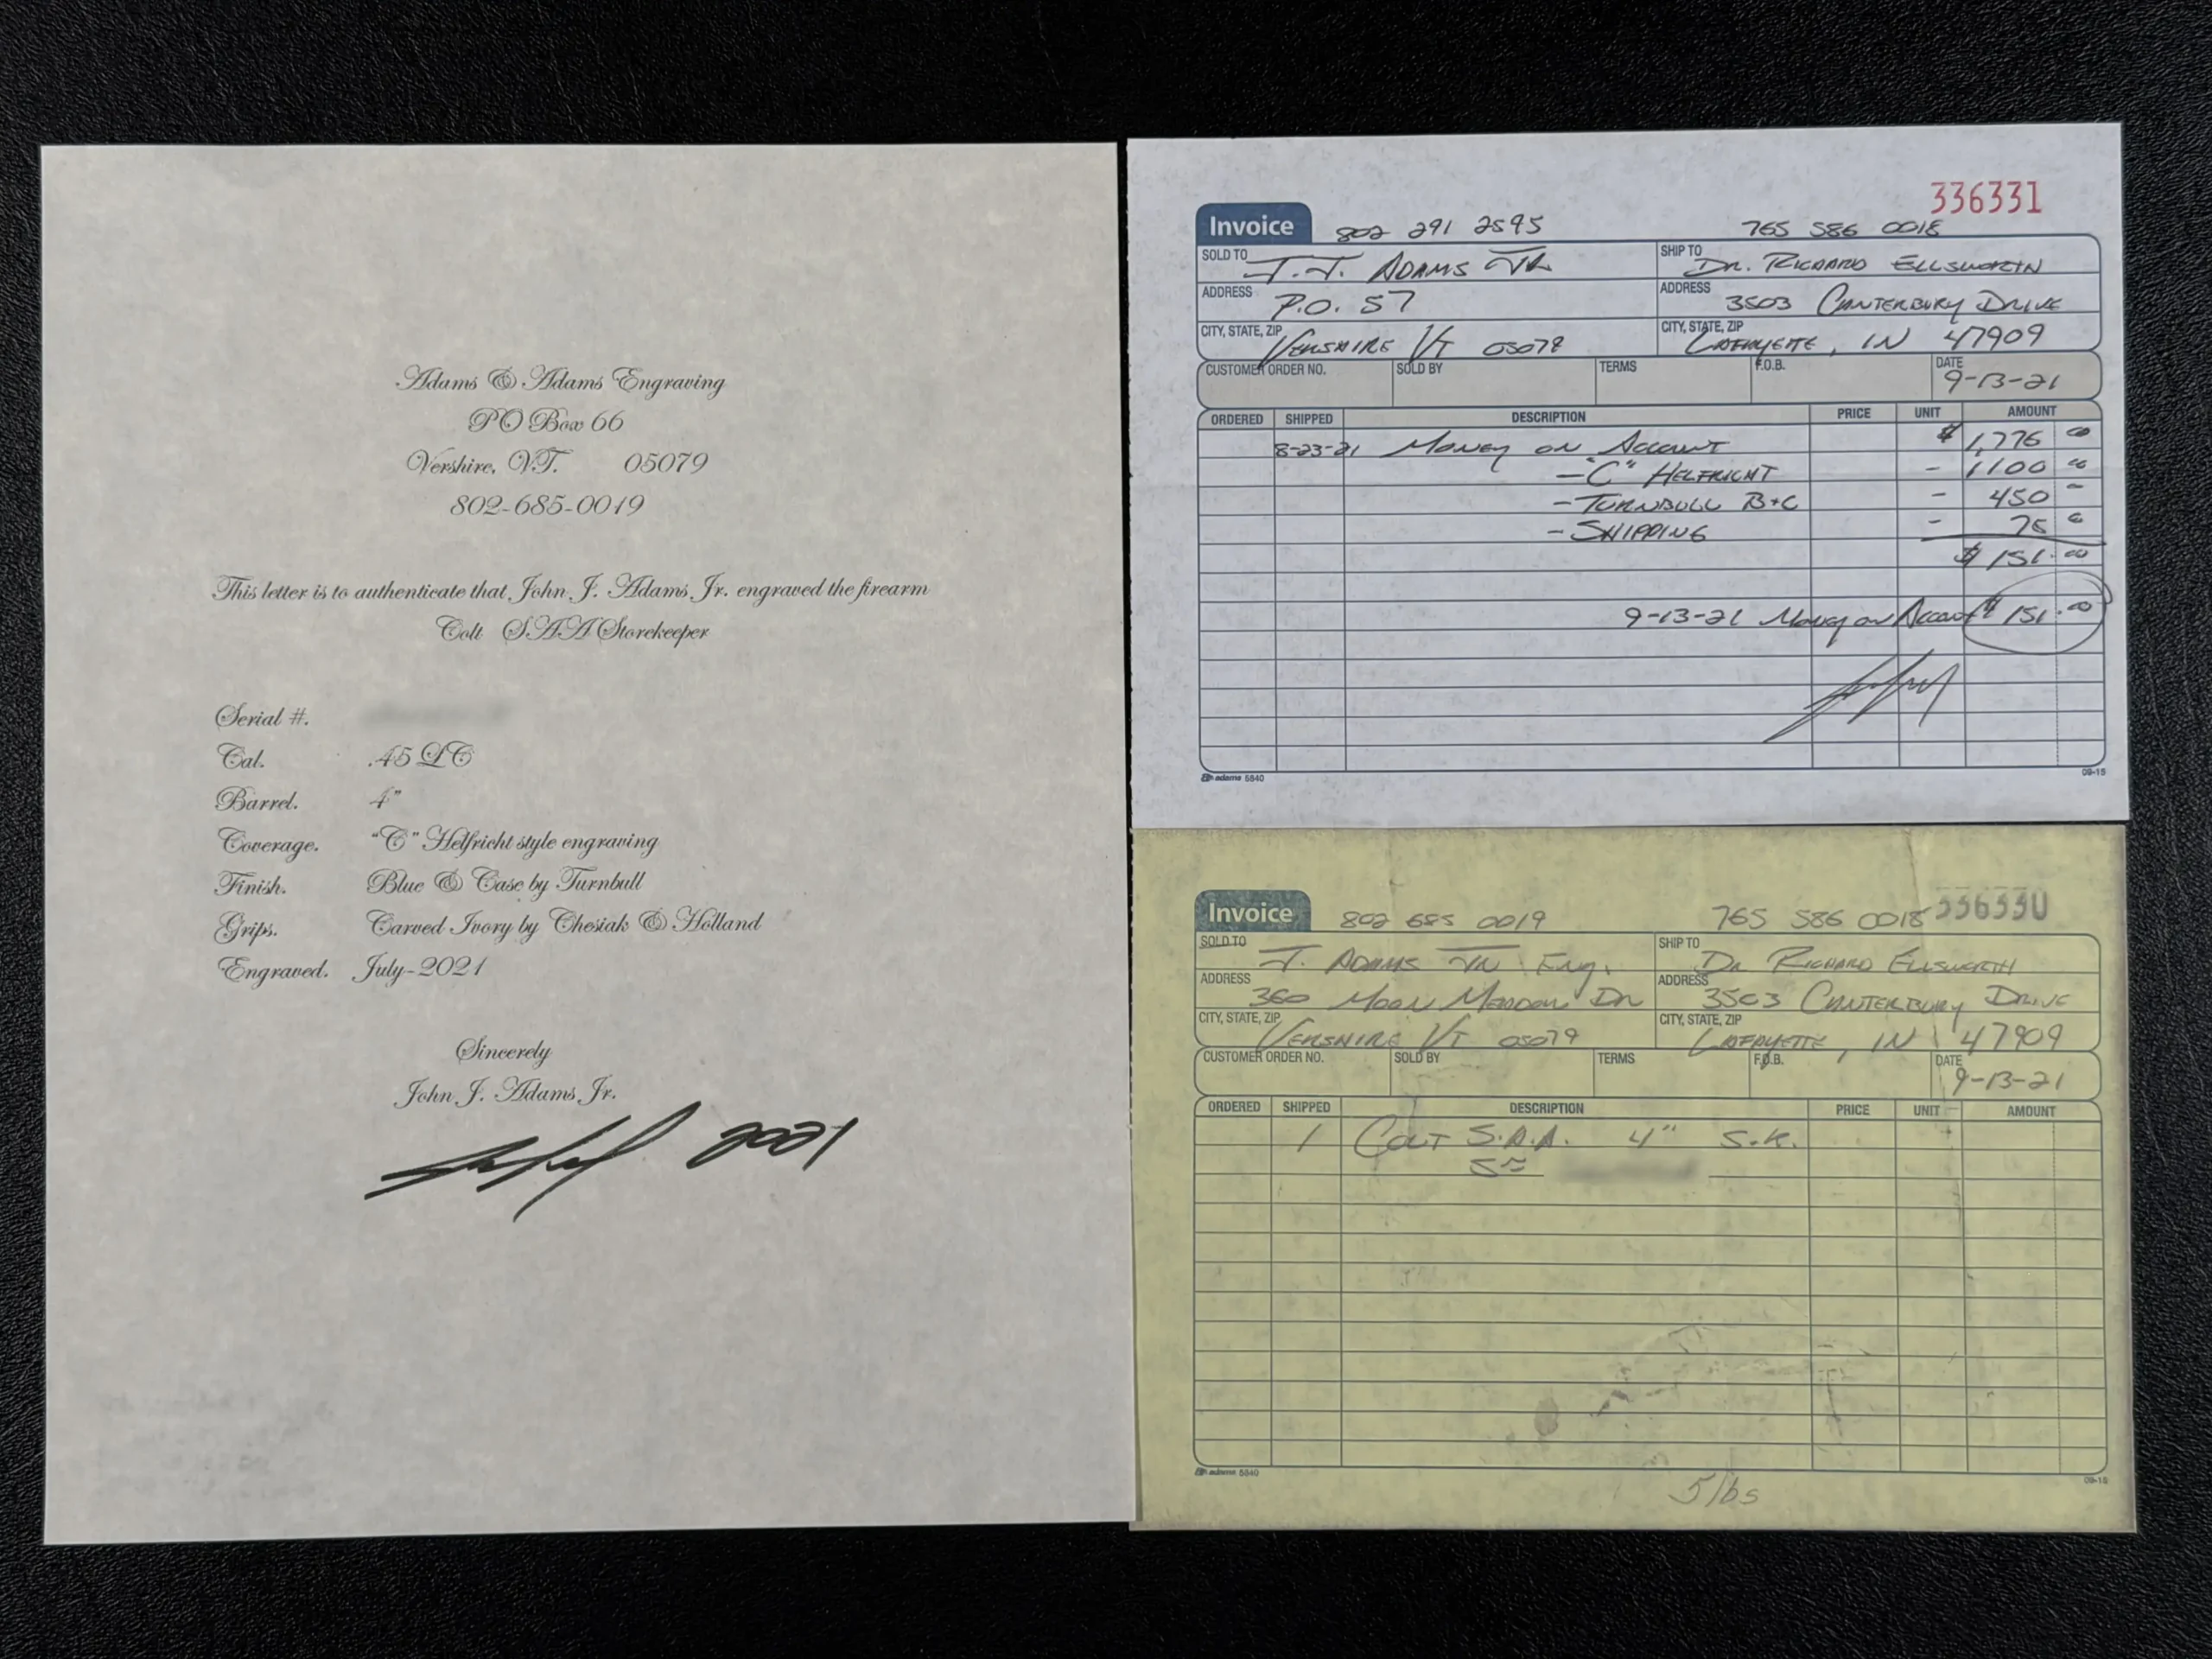 Adams & Adams Engraving
PO Box 66
Vershire, VT. 05079
802-685-0019
This letter is to authenticate that John J. Adams, Jr. engraved the firearm
Colt SAA Storekeeper
Serial #.
Cal. .45 LC
Barrel. 4"
Coverage. "C" Helfricht style engraving
Finish. Blue & Case by Turnbull
Grips. Carved Ivory by Chesiak & Holland
Engraved. July-2021
Sincerely
John J. Adams, Jr.
2021
336331
Invoice 802 291 2595 765 586 0018
SOLD TO J.J. ADAMS JR SHIP TO DR. RICHARD ELLSWORTH
ADDRESS P.O. 57 ADDRESS 3503 CANTERBURY DRIVE
CITY, STATE, ZIP VERSHIRE VT 05079 CITY, STATE, ZIP LAFAYETTE, IN 47909
CUSTOMER ORDER NO. SOLD BY TERMS F.O.B. DATE 9-13-21
ORDERED SHIPPED DESCRIPTION PRICE UNIT AMOUNT
8-23-21 MONEY ON ACCOUNT $ 1,776 00
- "C" HELFRICHT - 1100 00
- TURNBULL B+C - 450 -
- SHIPPING - 75 0
$ 151.00
9-13-21 Money on Account $ 151.00
adams 5840 09-15
Invoice 802 685 0019 765 586 0018 336330
SOLD TO J. ADAMS JR Eng. SHIP TO DR RICHARD ELLSWORTH
ADDRESS 360 MOON MEADOW DR ADDRESS 3503 CANTERBURY DRIVE
CITY, STATE, ZIP VERSHIRE VT 05079 CITY, STATE, ZIP LAFAYETTE, IN 47909
CUSTOMER ORDER NO. SOLD BY TERMS F.O.B. DATE 9-13-21
ORDERED SHIPPED DESCRIPTION PRICE UNIT AMOUNT
1 COLT S.A.A. 4" S.K.
adams 5840 09-15
5 lbs